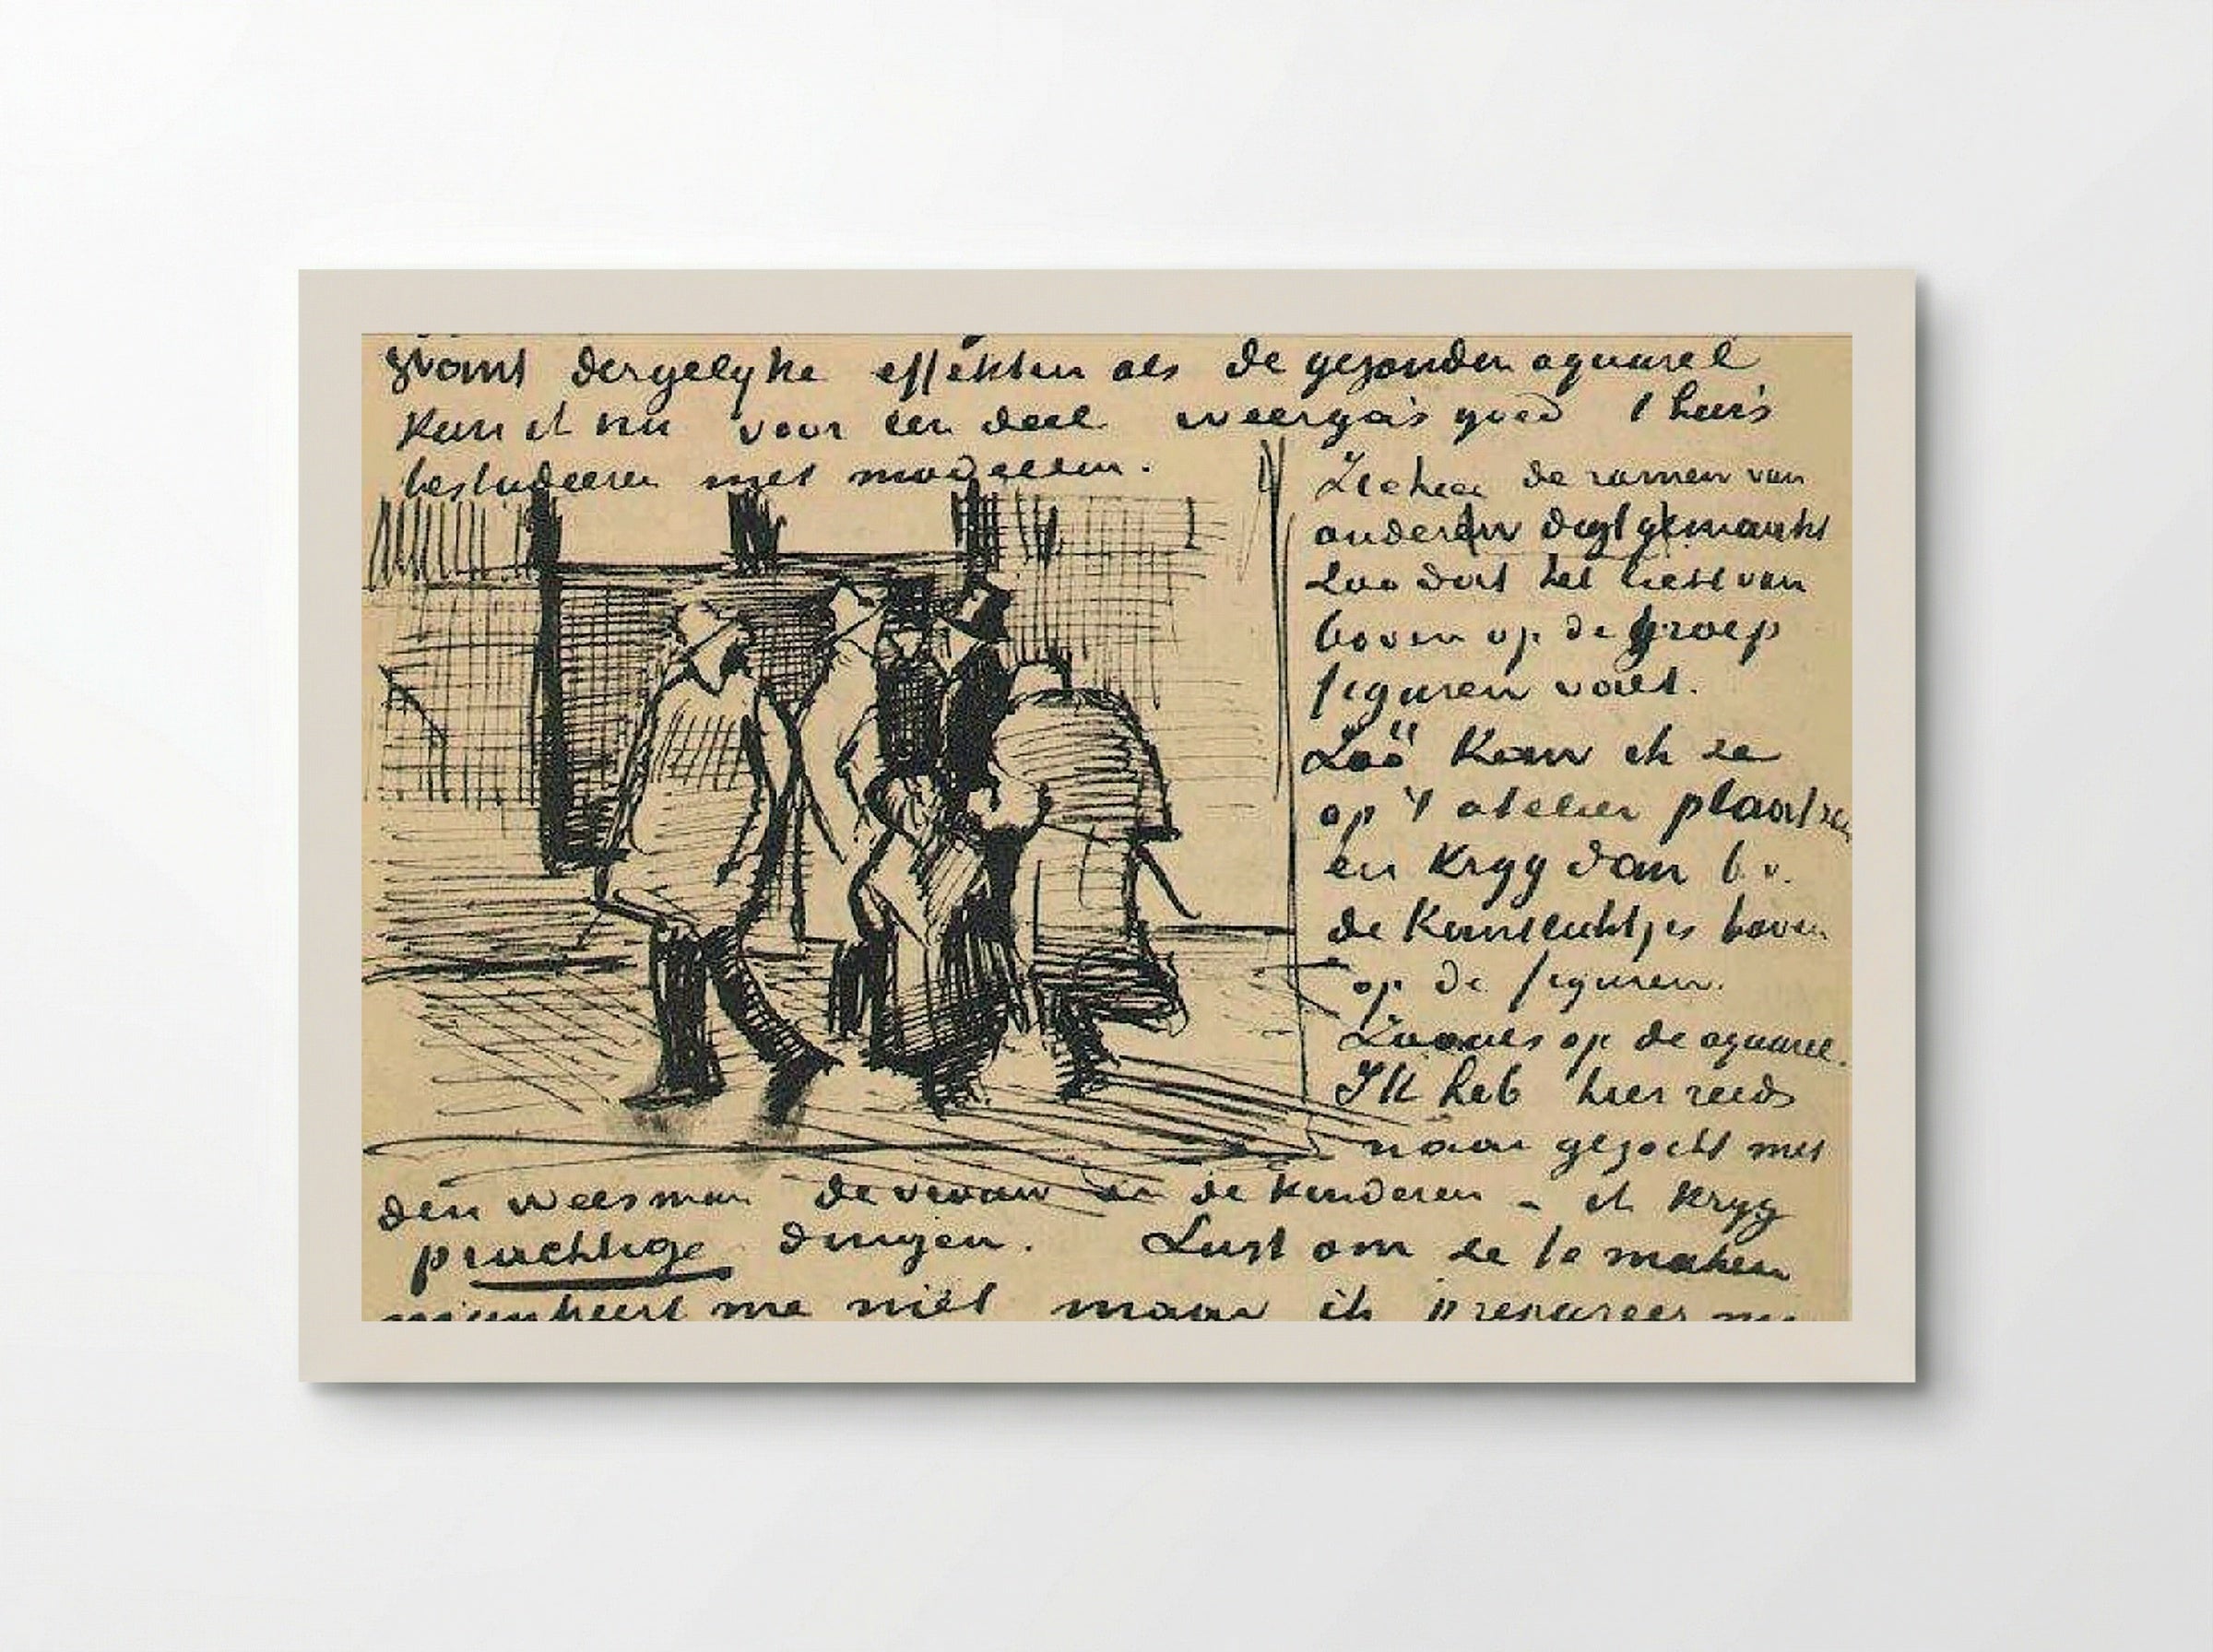 want dergelyke effekten als de gezonden aquarel
kan ik nu voor een deel weergaas goed thuis
bestudeeren met modellen.
Ziehier de ramen van
onderen digt gemaakt
zoo dat het licht van
boven op de groep
figuren valt.
Zoo kan ik ze
op 't atelier plaatsen
en kryg dan b.v.
de kantlichtjes boven
op de figuren.
Zooals op de aquarel.
Ik heb hier reeds
naar gezocht met
den weesman de vrouw en de kinderen – ik kryg
prachtige dingen. Lust om ze te maken
mankeert me niet maar ik prepareer my